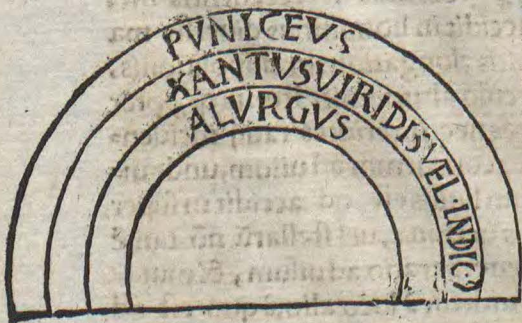 PVNICEVS
XANTVSVIRIDIS VEL·INDIC9
ALVRGVS